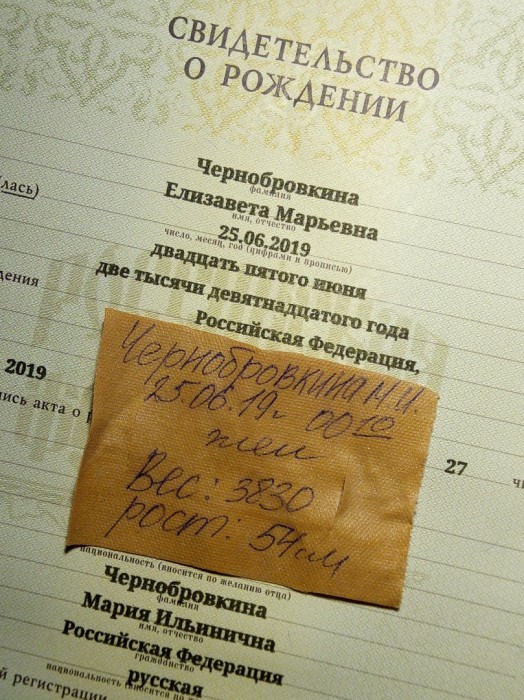 СВИДЕТЕЛЬСТВО
О РОЖДЕНИИ
Чернобровкина
фамилия
лась)
Елизавета Марьевна
имя, отчество
25.06.2019
число, месяц, год (цифрами и прописью)
двадцать пятого июня
дения
две тысячи девятнадцатого года
Российская Федерация,
2019
ись акта о
27
Чернобровкина М.И.
25.06.19г 00 10
жен
Вес: 3830
рост: 54 см
национальность (вносится по желанию отца)
Чернобровкина
фамилия
Мария Ильинична
имя, отчество
Российская Федерация
гражданство
русская
национальность (вносится по
й регистрации